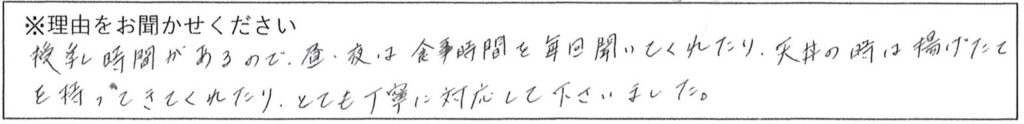 ※理由をお聞かせください
授乳時間があるので、昼・夜は食事時間を毎回聞いてくれたり、天丼の時は揚げたて
を持ってきてくれたり、とても丁寧に対応して下さいました。